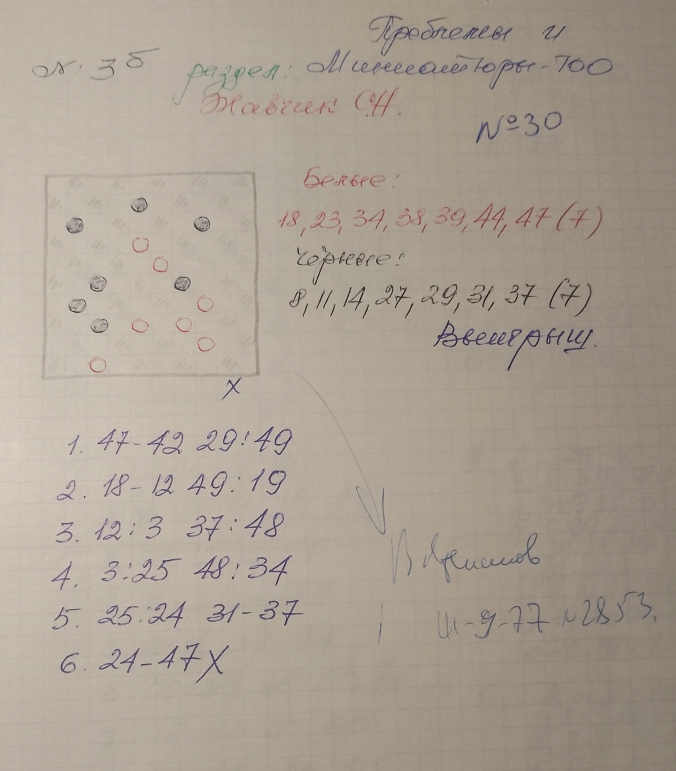 Проблемы и
№ 3б раздел: Миниатюры-100
Жавчик С.Н.
№30
Белые:
18, 23, 34, 38, 39, 44, 47 (7)
Чёрные:
8, 11, 14, 27, 29, 31, 37 (7)
Выигрыш.
X
1. 47-42 29:49
2. 18-12 49:19
3. 12:3 37:48
4. 3:25 48:34
5. 25:24 31-37
6. 24-47X
Ш-9-77 №2853.